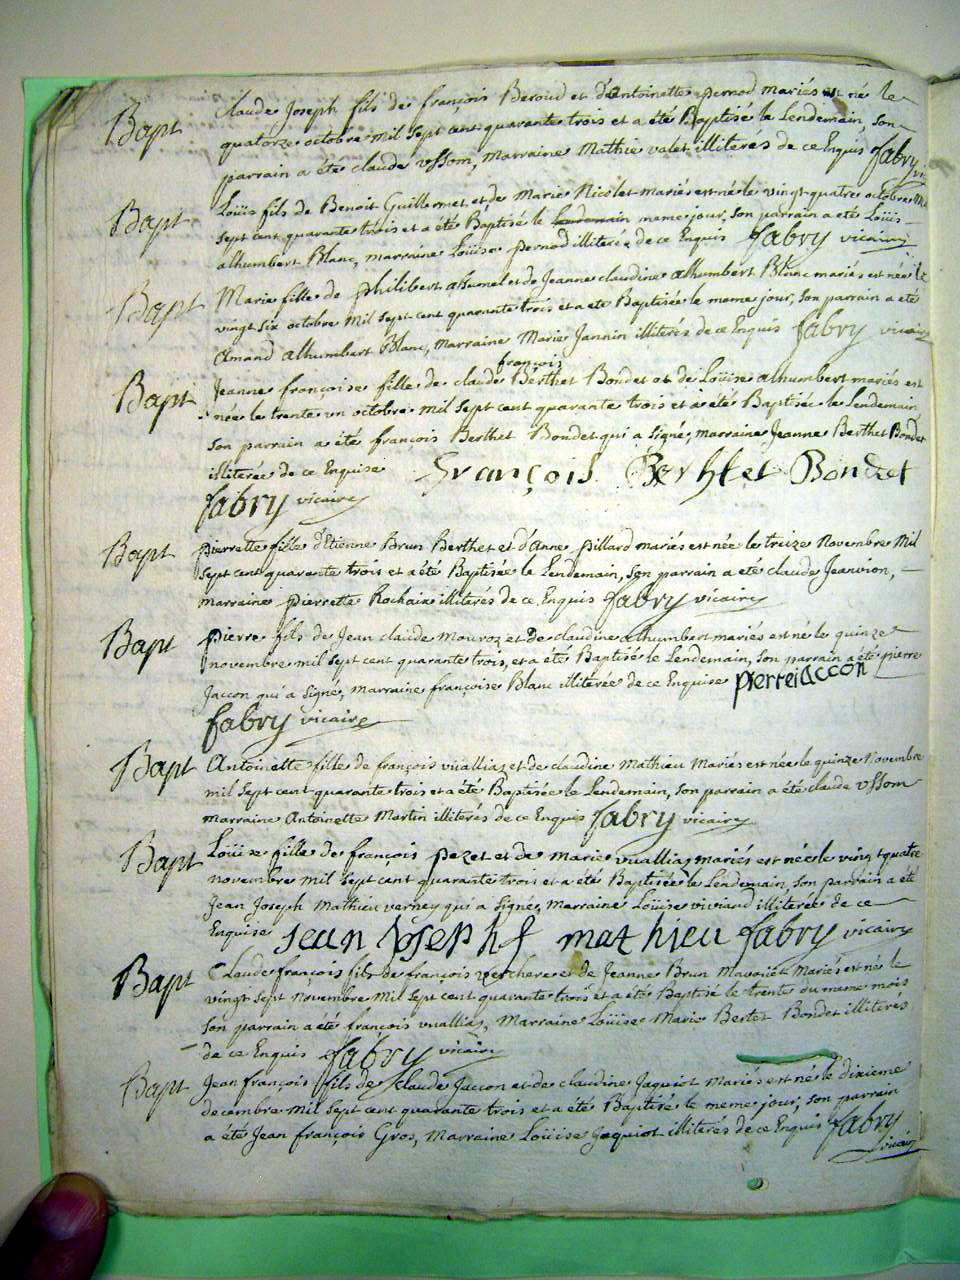 Bapt Claude Joseph fils de françois Beroud et d'Antoinette pernod mariés est né le
quatorze octobre mil sept cent quarante trois et a été Baptisé le Lendemain, son
parrain a été claude Vssom, marraine Mathie valet illiterés de ce Enquis fabry
Bapt Loüis fils de Benoit Guillermet et de Marie Nicolet mariés est né le vingt quatre octobre mil
sept cent quarante trois et a été Baptisé le Lendemain meme jour, son parrain a eté Loüis
alhumbert Blanc, marraine Loüise pernod illiterée de ce Enquis fabry vicaire
Bapt Marie fille de philibert et de Jeanne claudine alhumbert Blanc mariés est née le
vingt six octobre mil sept cent quarante trois et a eté Baptisée le meme jour, son parrain a été
Amand alhumbert Blanc, marraine Marie Jannin illiterés de ce Enquis fabry vicaire
françois
Bapt Jeanne françoise fille de claude Berthet Bondet et de Loüise alhumbert mariés est
née le trente un octobre mil sept cent quarante trois et a été Baptisée le Lendemain
son parrain a été françois Berthet Bondet qui a signé, marraine Jeanne Berthet Bondet
illiterée de ce Enquise François Berhtet Bondet
fabry vicaire
Bapt pierrette fille d'Etienne Brun Berthet et d'Anne pillard mariés est née le treize Novembre Mil
sept cent quarante trois et a été Baptisée le Lendemain, son parrain a eté claude Jeanvion,
marraine pierrette Rochaix illiterés de ce Enquis fabry vicaire
Bapt pierre fils de Jean claude Mouroz et De claudine alhumbert mariés est né le quinze
novembre mil sept cent quarante trois, et a été Baptisé le Lendemain, son parrain a été pierre
Jaccon qui a signé, marraine françoise Blanc illiterée de ce Enquise pierre iaccon
fabry vicaire
Bapt Antoinette fille de françois vualliaz et de claudine Mathieu Mariés est née le quinze Novembre
mil sept cent quarante trois et a été Baptisée le Lendemain, son parrain a été claude Vssom
marraine Antoinette Martin illiterés de ce Enquis fabry vicaire
Bapt Loüise fille de françois pezet et de marie vualliaz mariés est née le vingt quatre
novembre mil sept cent quarante trois et a été Baptisée le Lendemain, son parrain a eté
Jean Joseph Mathieu verney qui a signé, Marraine Loüise viviand illiterée de ce
Enquise jean josephf mathieu fabry vicaire
Bapt Claude françois fils de françois verchere et de Jeanne Brun Mariés est né le
vingt sept novembre mil sept cent quarante trois et a été Baptisé le trente du meme mois
son parrain a été françois vualliaz, Marraine Loüise Marie Bertet Bondet illiterés
de ce Enquis fabry vicaire
Bapt Jean françois fils de claude Jaccon et de claudine Jaquiot Mariés est né le dixieme
decembre mil sept cent quarante trois et a été Baptisé le meme jour, son parrain
a été Jean françois Gros, Marraine Loüise Jaquiot illiterés de ce Enquis fabry
vicaire